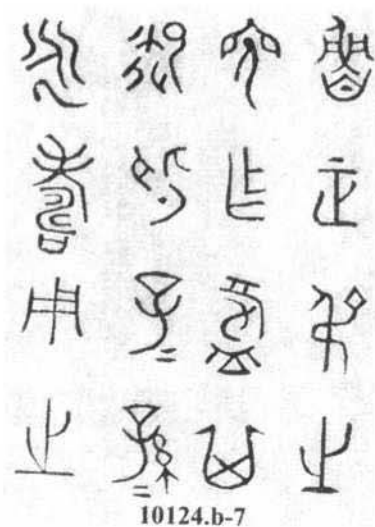 魯正弔之
乍鑄其
御般子=孫=
永壽用之
10124.b-7